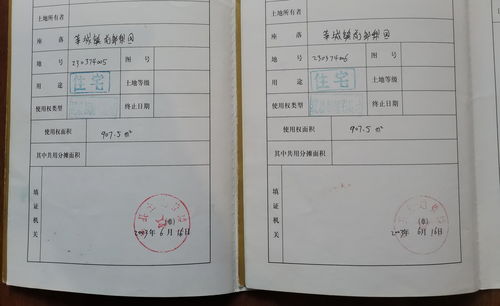 土地所有者
座落 莘城镇南郭梨园
地号 230374005 图号
用途 住宅 土地等级
使用权类型 终止日期
使用权面积 907.5 m²
其中共用分摊面积
填证机关
(章)
2003年6月16日
土地所有者
座落 莘城镇南郭梨园
地号 230374006 图号
用途 住宅 土地等级
使用权类型 终止日期
使用权面积 907.5 m²
其中共用分摊面积
填证机关
(章)
2003年6月16日